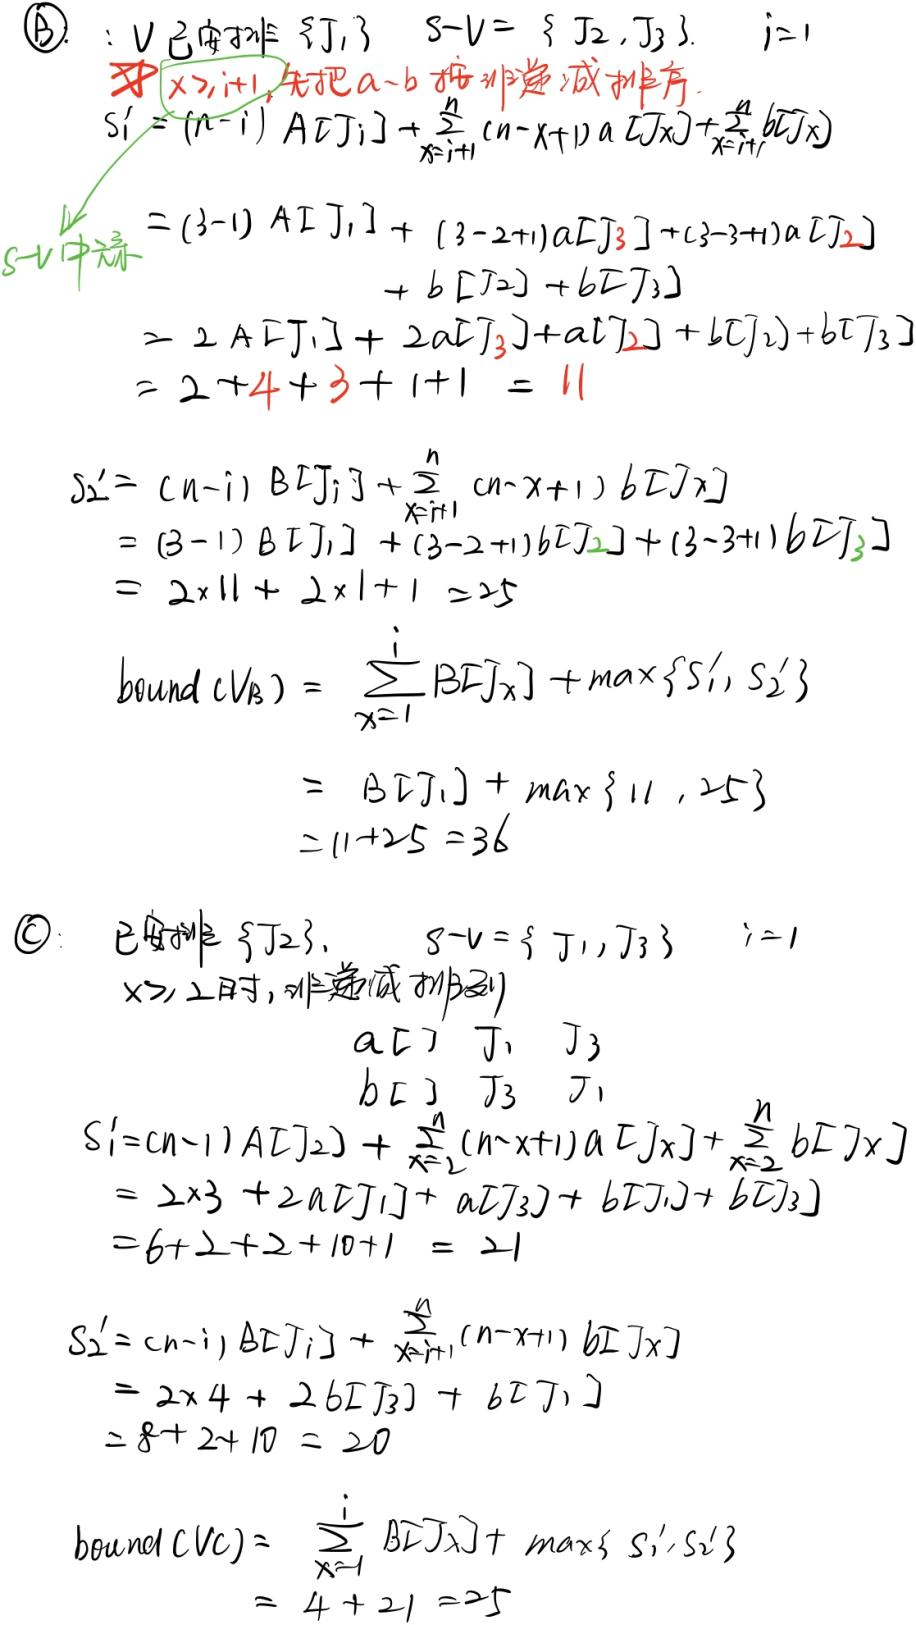 Ⓑ: V已安排{J₁} S-V={J₂,J₃}. i=1
对 x≥i+1,先把a~b按非递减排序.
S₁'=(n-i)A[Jᵢ]+∑ⁿₓ₌ᵢ₊₁(n-x+1)a[Jx]+∑ⁿₓ₌ᵢ₊₁b[Jx]
=(3-1)A[J₁]+(3-2+1)a[J₃]+(3-3+1)a[J₂]
S-V中元素
+b[J₂]+b[J₃]
=2A[J₁]+2a[J₃]+a[J₂]+b[J₂]+b[J₃]
=2+4+3+1+1=11
S₂'=(n-i)B[Jᵢ]+∑ⁿₓ₌ᵢ₊₁(n-x+1)b[Jx]
=(3-1)B[J₁]+(3-2+1)b[J₂]+(3-3+1)b[J₃]
=2×11+2×1+1=25
bound(VB)=∑ⁱₓ₌₁B[Jx]+max{S₁',S₂'}
=B[J₁]+max{11,25}
=11+25=36
Ⓒ: 已安排{J₂}. S-V={J₁,J₃} i=1
x≥2时,非递减排列
a[] J₁ J₃
b[] J₃ J₁
S₁'=(n-1)A[J₂]+∑ⁿₓ₌₂(n-x+1)a[Jx]+∑ⁿₓ₌₂b[Jx]
=2×3+2a[J₁]+a[J₃]+b[J₁]+b[J₃]
=6+2+2+10+1=21
S₂'=(n-i)B[Jᵢ]+∑ⁿₓ₌ᵢ₊₁(n-x+1)b[Jx]
=2×4+2b[J₃]+b[J₁]
=8+2+10=20
bound(VC)=∑ⁱₓ₌₁B[Jx]+max{S₁',S₂'}
=4+21=25